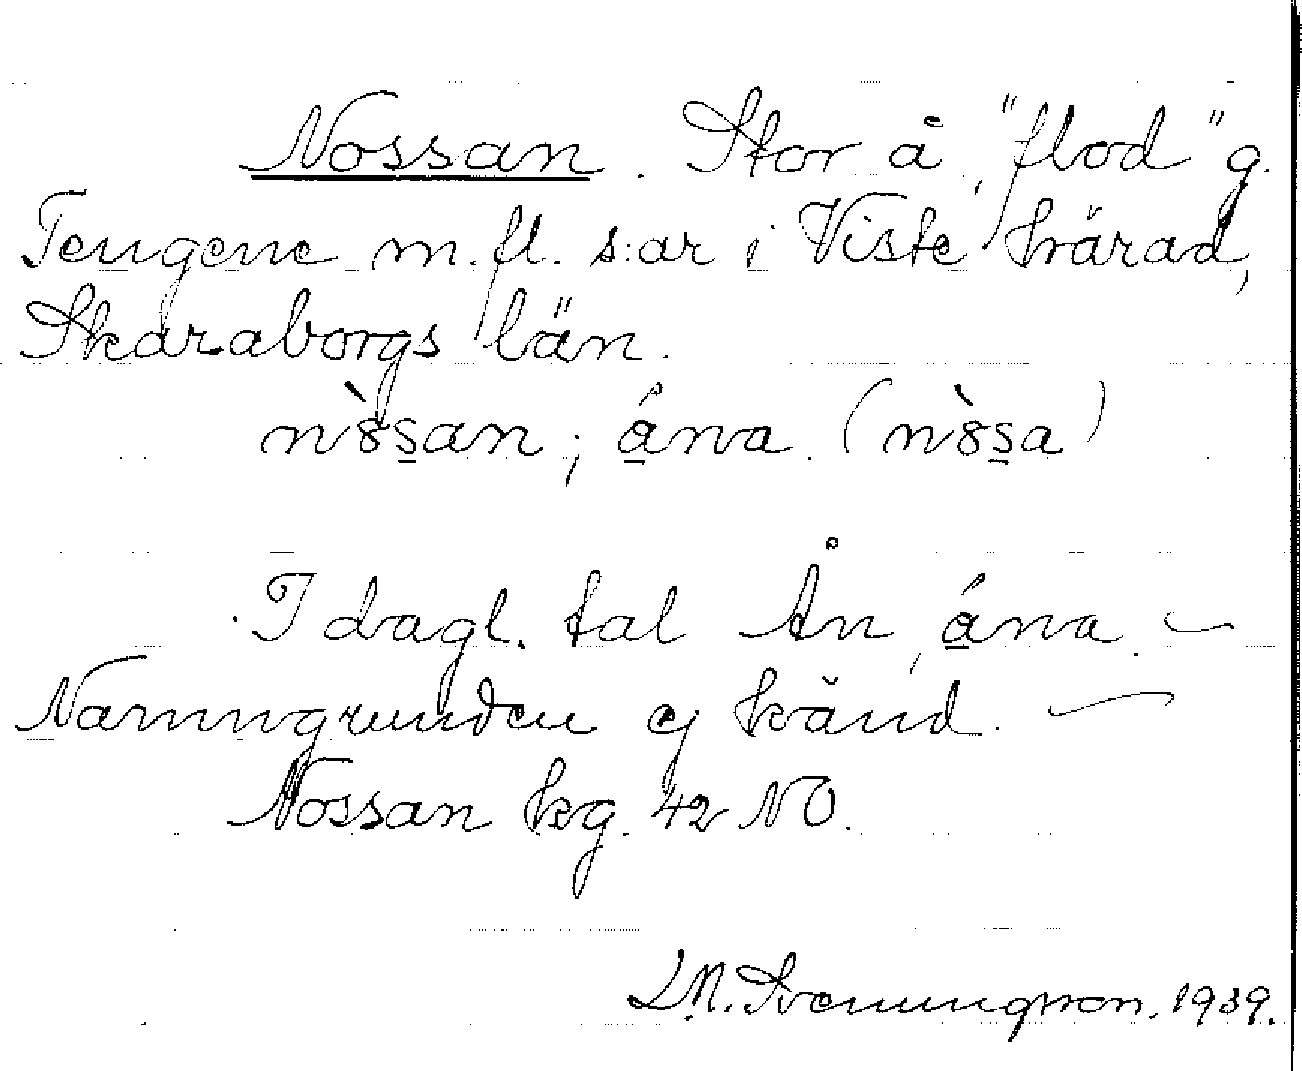 Nossan. Stor å, "flod" g.
Tengene m.fl. s:ar i Viste härad,
Skaraborgs län.
n`8s̲an; á̲na. (n`8s̲a)
I dagl. tal Ån, á̲na. —
Namngrunden ej känd. —
Nossan kg. 42 NO.
L.N. Svenungsson. 1939.